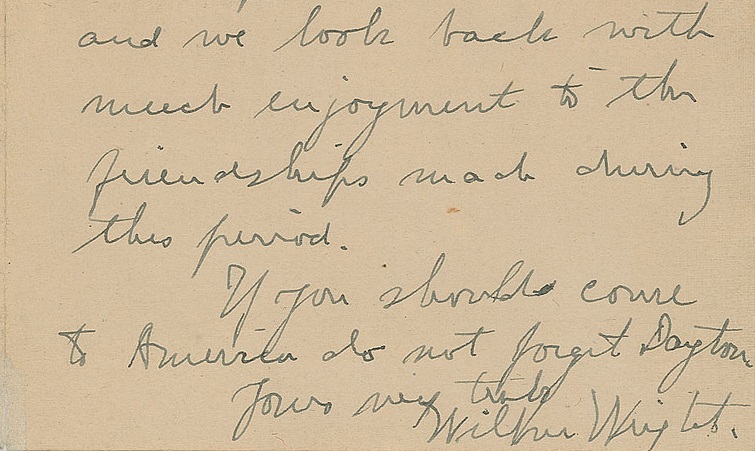 and we look back with
much enjoyment to the
friendships made during
this period.
If you should come
to America do not forget Dayton.
Yours very truly
Wilbur Wright.